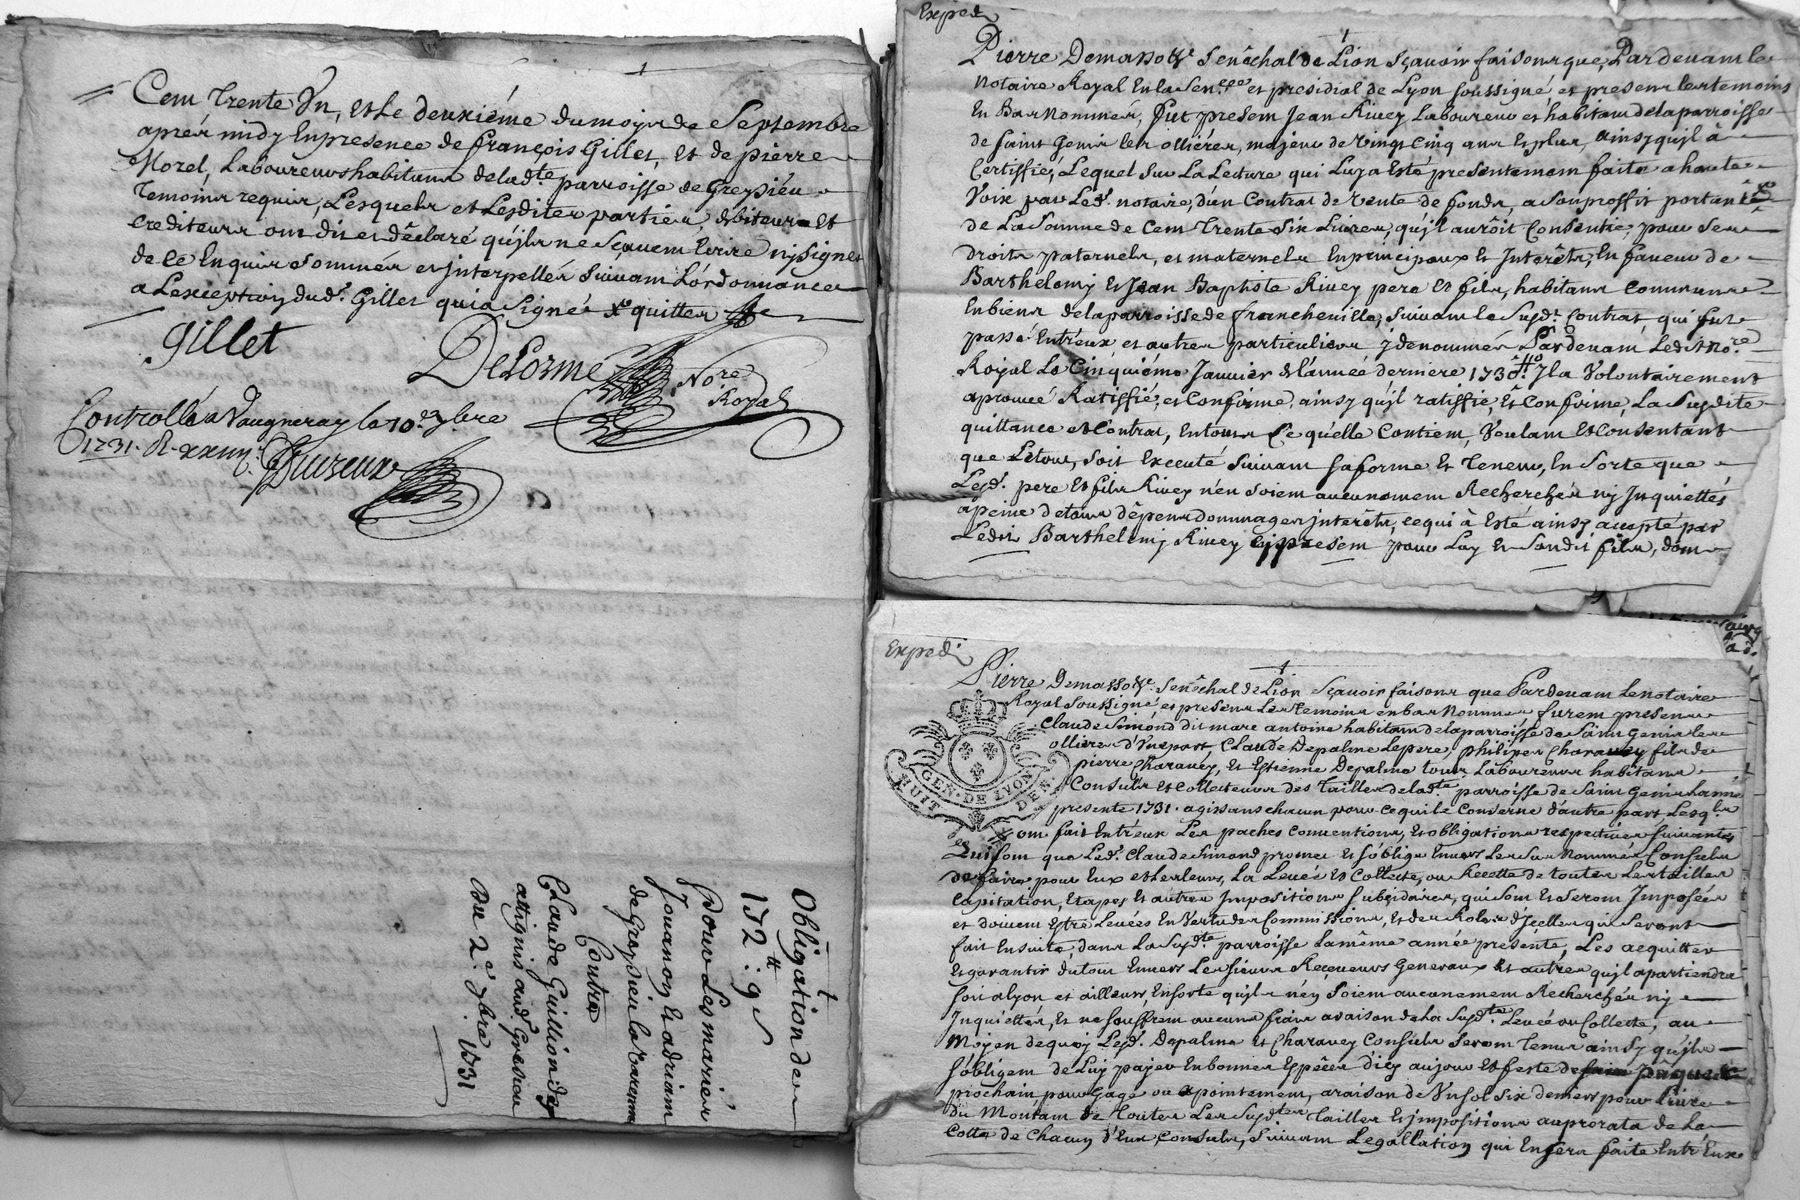 Cent Trente Un, et le deuxiéme du moys de Septembre
aprés midy En presence de françois Gillet, et de pierre
Morel, Laboureurs habitans de lad.te parroisse de Greysieu
temoins requis, Lesquels et Lesdites parties, debiteurs et
crediteurs ont dit et déclaré qu'jls ne Sçavent Ecrire nj signer
de ce Enquis Sommés et jnterpellés Suivant L'ordonnance
a L'exception dud.t Gillet qui a Signé
Gillet
DeLorme
No.re Royal
Controllé a Vaugneray le 10.e 7bre
1731. R.
Obligation de
152.tt 9 s
Pour Les mariés
Jouanon et adriam
de Greysieu la varenne
Contre
Claude Guillion des
attignis aud.t Gresieu
Du 2.e 7bre. 1731
Exped.
Pierre Demasso &c. Senéchal de Lion Sçavoir faisons que, Pardevant le
Notaire Royal En la Sen.ée et presidial de Lyon soussigné et presens les temoins
En Bas Nommés, fut present Jean Rivey Laboureur et habitant de la parroisse
de saint Genis les ollieres, majeur de vingt cinq ans Et plus, ainsy qu'jl a
Certiffié, Lequel sur La Lecture qui Luy a Esté presentement faite a haute
Voix par Led.t notaire, d'un Contrat de Vente de fonds, a son proffit portant
de La Somme de Cent Trente Six Livres, qu'jl auroit Consentie, pour ses
droits paternels, et maternels En principaux Et Interêts, En faveur de
Barthelemy Et Jean Baptiste Rivey pere Et fils, habitans Communs
En biens de la parroisse de francheville, Suivant le Susd.t Contrat qui fut
passé Entr'eux et autres particuliers y denommés Pardevant Ledit No.re
Royal Le Cinquiéme Janvier de l'année derniere 1730. Jl a Volontairement
aprouvé Ratiffié, et Confirmé, ainsy qu'jl ratiffie, Et Confirme, La Susdite
quittance et Contrat, En tout Ce qu'elle Contient, Voulant Et Consentant
que Le tout, soit Executé Suivant sa forme Et Teneur, En Sorte que
Lesd.s pere Et fils Rivey n'en Soient aucunement Recherchés nj Inquiettés
a peine de tous dépens dommages jnterêts, ce qui a Esté ainsy accepté par
Ledit Barthelemy Rivey cy present pour Luy et Sondit fils, dont
Exped.
Pierre Demasso &c. Senéchal de Lion Sçavoir faisons que Pardevant Le notaire
Royal Soussigné et presens Les temoins en bas Nommés furent presens
Claude Simond dit marc antoine habitant de la parroisse de Saint Genis les
ollieres d'Une part, Claude Depalme Le pere, Philipes Charavey fils de
pierre Charavey, et Estienne Depalme tous Laboureurs habitans
Consuls et Collecteurs des Tailles de lad.te parroisse de Saint Genis L'année
presente 1731. agissans chacun pour ce qui le Conserne d'autre part Lesq.ls
GEN. DE LYON
HUIT DEN.
ont fait Entr'eux Les paches Conventions, et obligations respectives suivantes
qui sont que Led.t Claude Simond promet Et s'oblige Envers Les Sus Nommés Consuls
de faire pour Eux et Les leurs, La Levée Et Collecte, ou Recette de toutes Les tailles
Capitation, Etapes et autres Impositions subsidiaires, qui sont Et seront Imposées
et doivent Estre Levées En Vertu des Commissions, Et des Roles d'Jcelles qui Seront
fait Ensuite, dans La Susd.te parroisse La même année presente, Les acquitter
Et garantir du tout Envers Les sieurs Receveurs Generaux et autres qu'jl apartiendra
soit a Lyon et ailleurs, En sorte qu'jls n'en Soient aucunement Recherchés nj
Inquiettés, Et ne souffrent aucuns frais a raison de la Susd.te Levée ou Collecte, au
Moyen de quoy Lesd.s Depalme Et Charavey Consuls Seront tenus ainsy qu'jls
s'obligent de Luy payer En bonnes Espèces d'icy au jour Et feste de paques
prochain pour gage ou apointement, a raison de Un sol six deniers pour Livre
Du Montant de Toutes Les Susd.tes Tailles Et jmpositions au prorata de La
Cotte de Chacun d'Eux Consuls, Suivant L'egallation qui En sera faite Entr'Eux